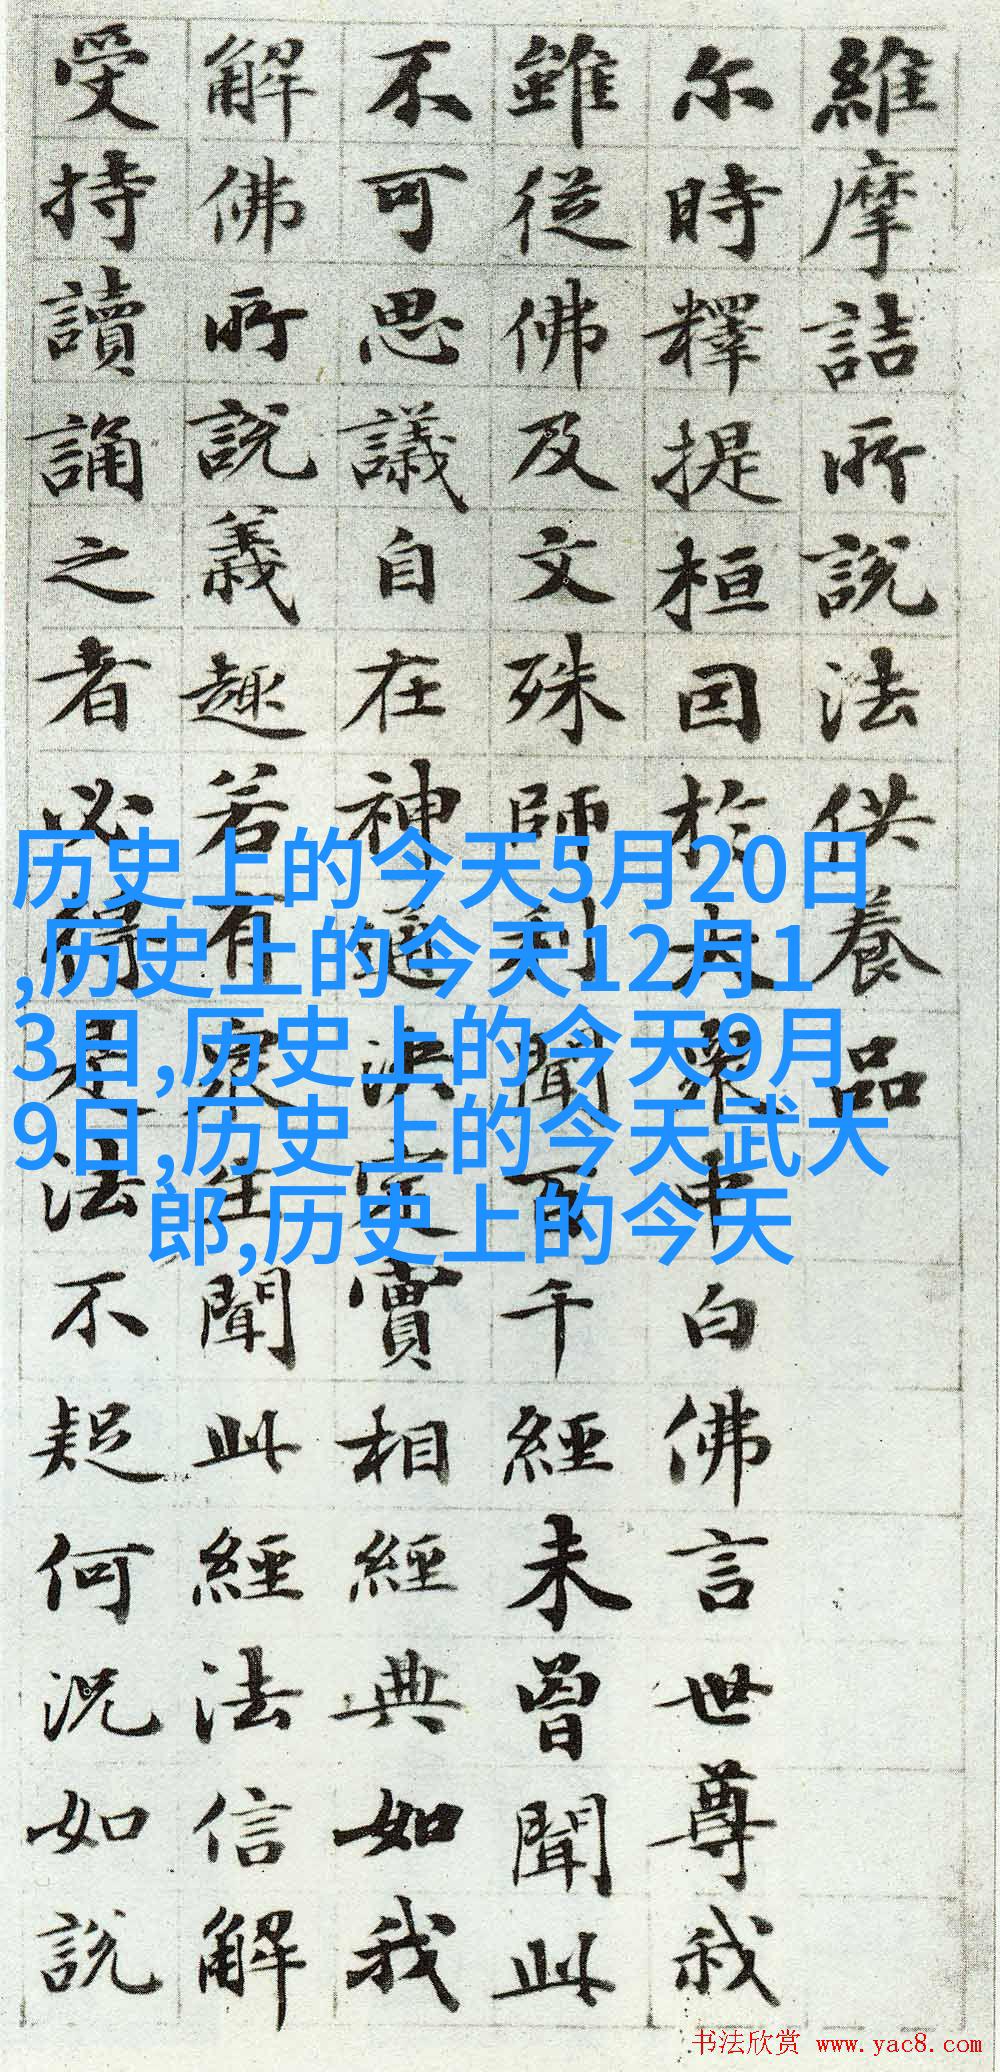 維摩詰所說法供養品
尔時釋提桓因於大衆中白佛言世尊我
雖從佛及文殊師利聞百千經未曾聞此
不可思議自在神通決定實相經典如我
解佛所說義趣若有衆生聞此經法信解
受持讀誦之者必得是法不疑何況如說
历史上的今天5月20日
,历史上的今天12月1
3日,历史上的今天9月
9日,历史上的今天武大
郎,历史上的今天
书法欣赏 www.yac8.com